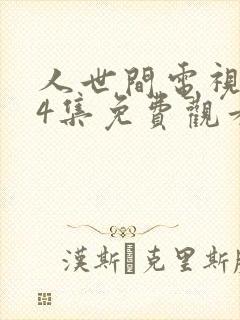 人世間電視
4集免費觀看
漢斯·克里斯